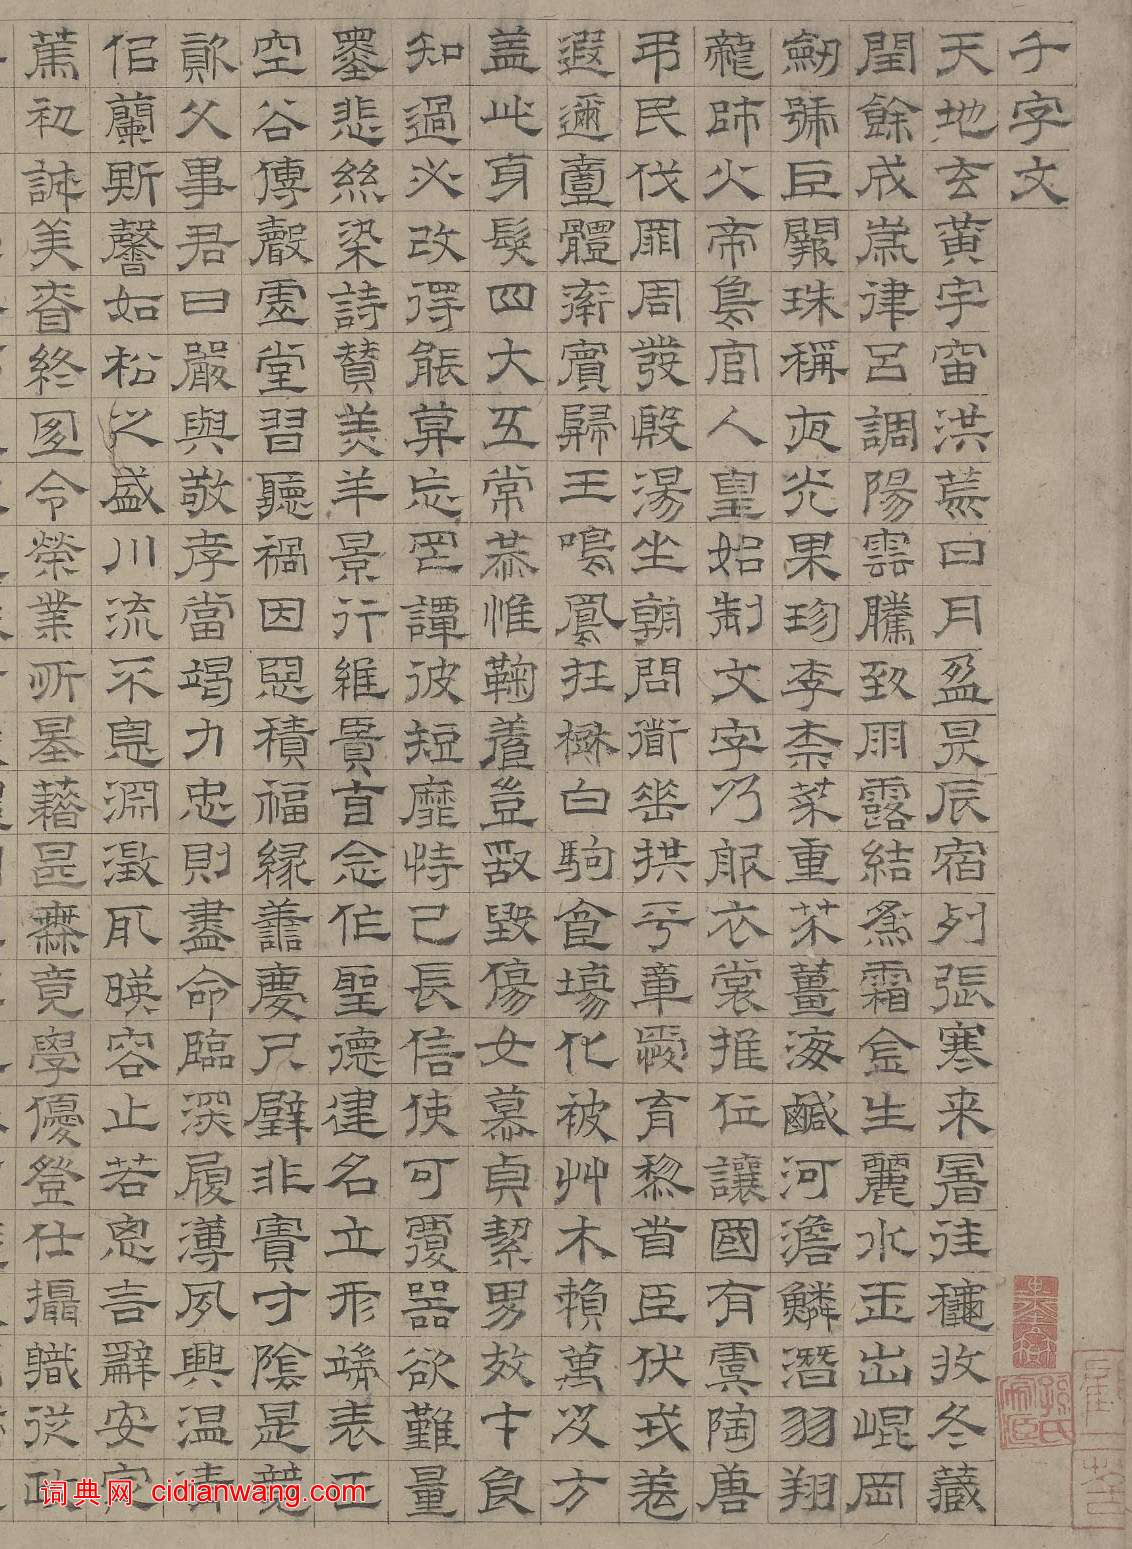 千字文
天地玄黃宇宙洪荒日月盈昃辰宿列張寒来暑往穐收冬藏
閏餘成歲律呂調陽雲騰致雨露結為霜金生麗水玉出崐岡
劒號巨闕珠稱夜光果珍李柰菜重芥薑海鹹河澹鱗潛羽翔
龍師火帝鳥官人皇始制文字乃服衣裳推位讓國有虞陶唐
弔民伐罪周發殷湯坐朝問道垂拱平章愛育黎首臣伏戎羌
遐邇壹體率賓歸王鳴鳳在樹白駒食場化被艸木賴萬及方
盖此身髮四大五常恭惟鞠養豈敢毀傷女慕貞絜男效才良
知過必改得能莫忘罔譚彼短靡恃己長信使可覆器欲難量
墨悲絲染詩贊羔羊景行維賢克念作聖德建名立形端表正
空谷傳聲虛堂習聽禍因惡積福緣善慶尺璧非寶寸陰是競
資父事君曰嚴與敬孝當竭力忠則盡命臨深履薄夙興温凊
似蘭斯馨如松之盛川流不息淵澂取暎容止若思言辭安定
篤初誠美昚終宜令榮業所基藉甚無竟學優登仕攝職從政
词典网 cidianwang.com